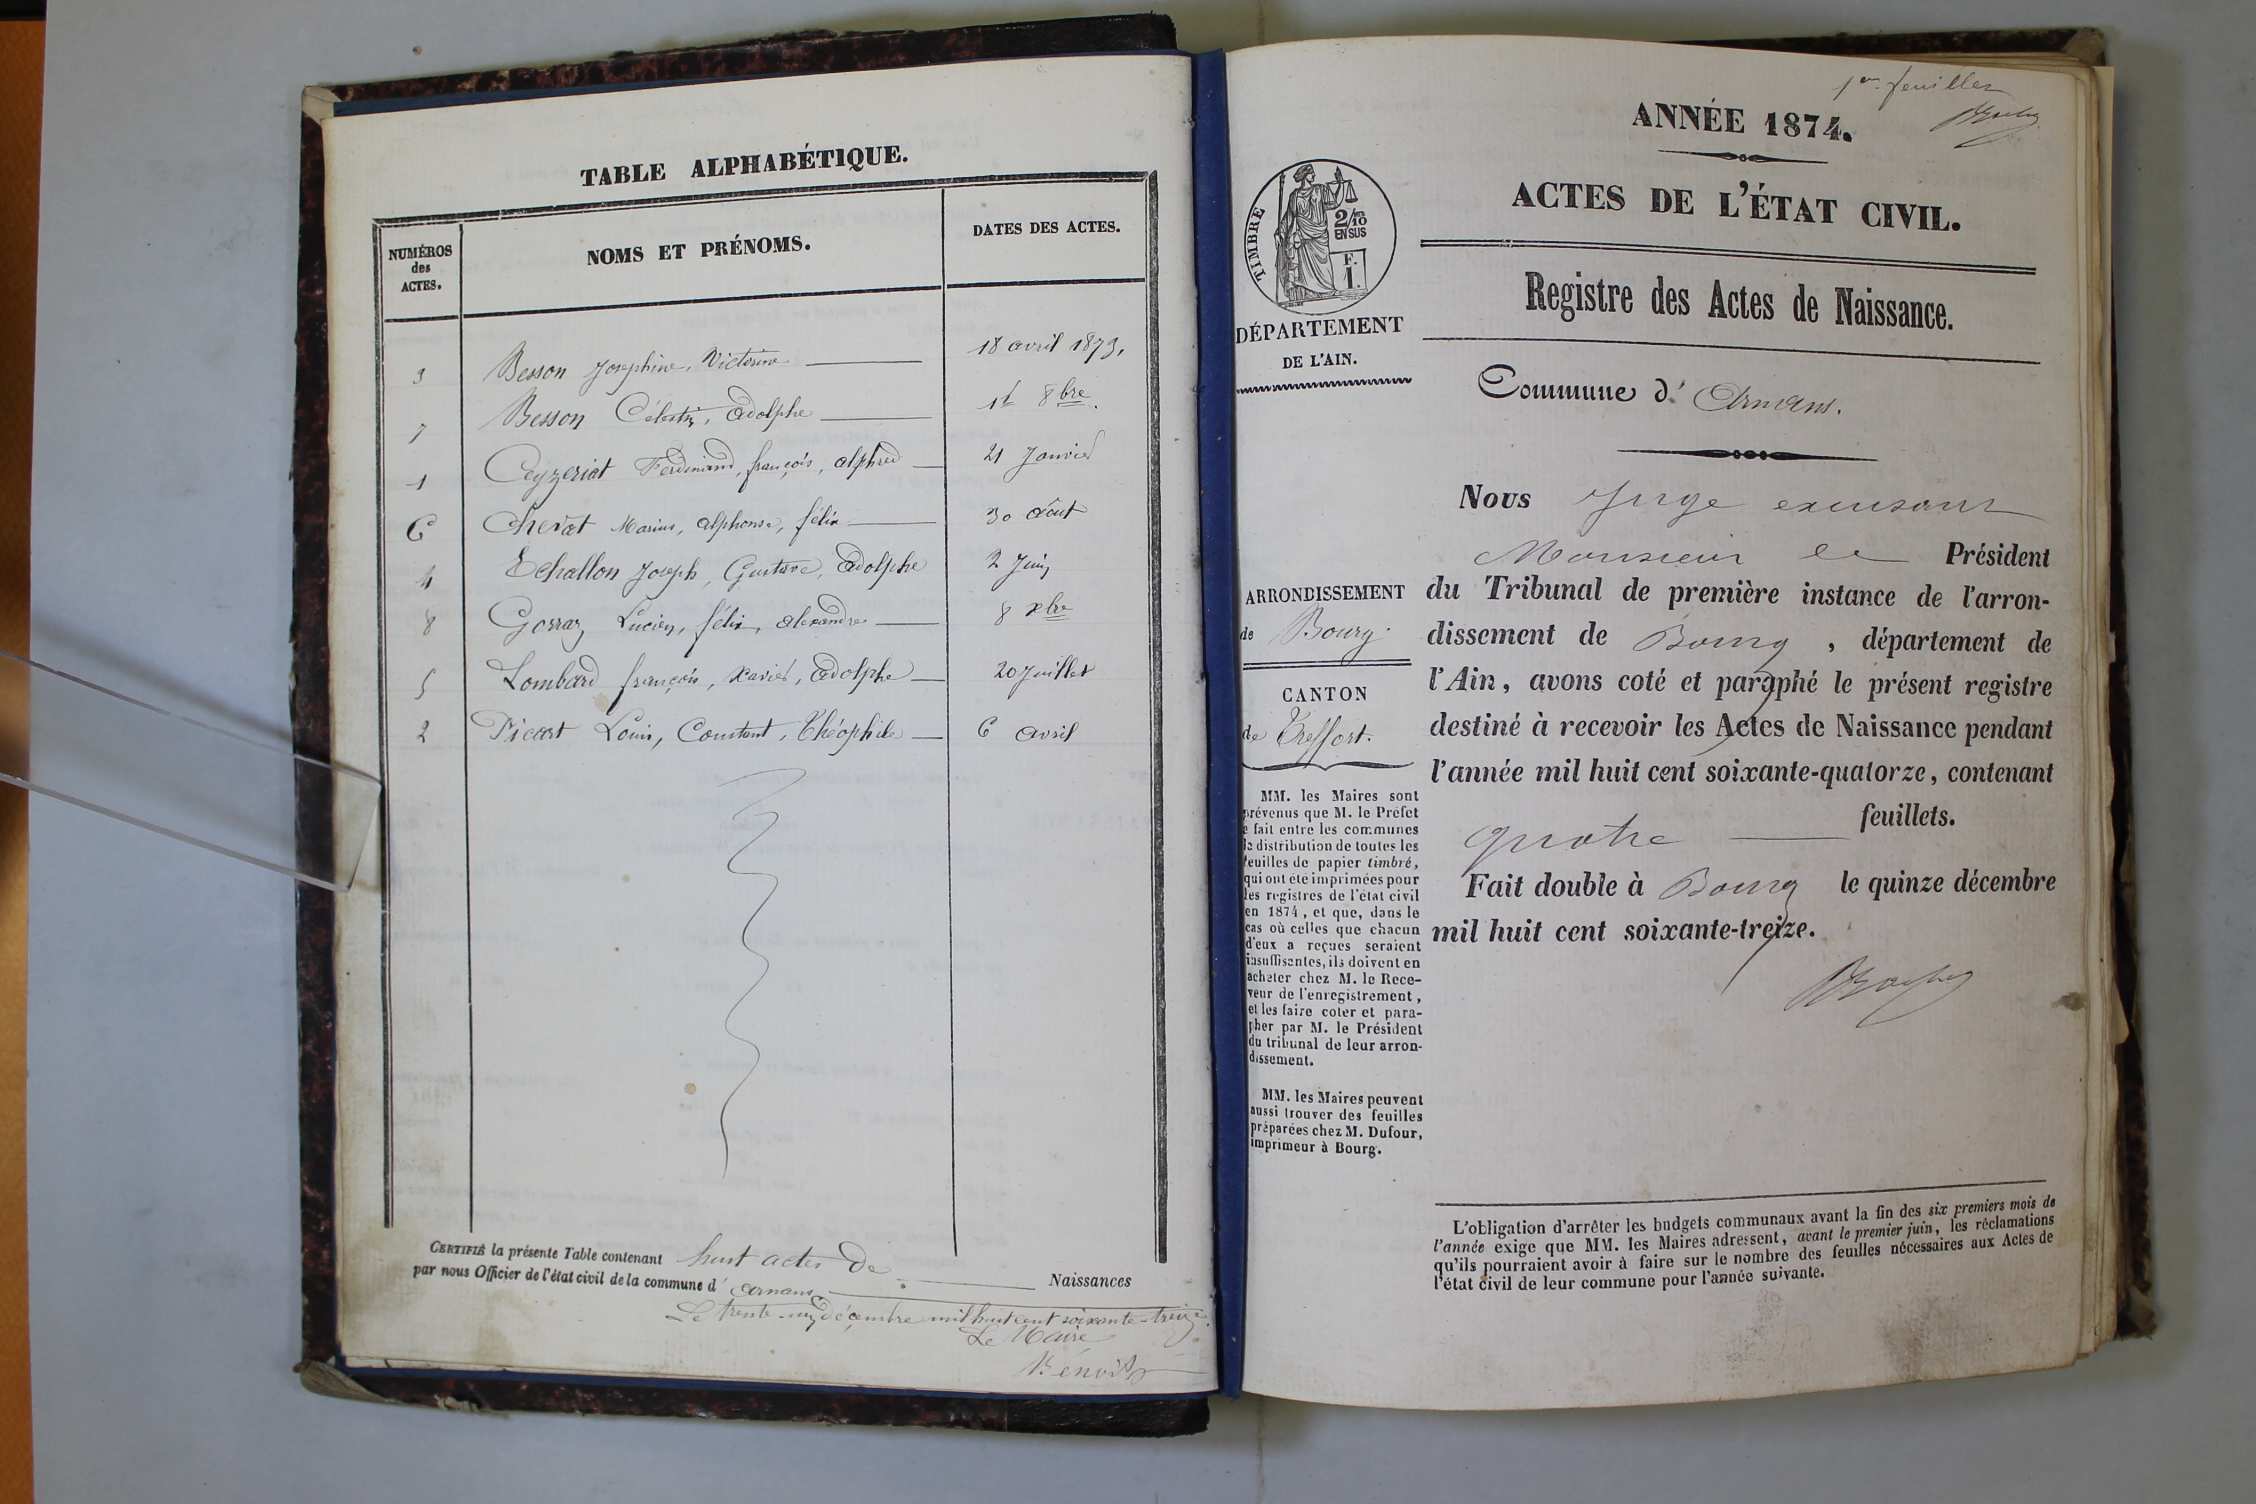 TABLE ALPHABÉTIQUE.
NUMÉROS des ACTES. NOMS ET PRÉNOMS. DATES DES ACTES.
3 Besson Josephine, Victorine 18 avril 1873,
7 Besson Célestin, Adolphe 8bre.
1 Ceyzeriat Ferdinand, françois, alphred 21 Janvier
6 Chevat Marius, alphonse, félix 30 Août
4 Echallon Joseph, Gustave, Adolphe 2 Juin
8 Gorraz Lucien, félix, alexandre 8 xbre
5 Lombard françois, Xavier, Adolphe 20 Juillet
2 Picart Louis, Constant, Théophile 6 avril
CERTIFIÉ la présente Table contenant huit actes de Naissances
par nous Officier de l'état civil de la commune d' arnans
Le trente-un décembre mil huit cent soixante-treize.
Le Maire
Bénoit
feuillet
ANNÉE 1874.
ACTES DE L'ÉTAT CIVIL.
Registre des Actes de Naissance.
TIMBRE
2/10 EN SUS
F. 1.
DÉPARTEMENT
DE L'AIN.
ARRONDISSEMENT
de Bourg.
CANTON
de Treffort.
MM. les Maires sont
prévenus que M. le Préfet
a fait entre les communes
la distribution de toutes les
feuilles de papier timbré,
qui ont été imprimées pour
les registres de l'état civil
en 1874, et que, dans le
cas où celles que chacun
d'eux a reçues seraient
insuffisantes, ils doivent en
acheter chez M. le Rece-
veur de l'enregistrement,
et les faire coter et para-
pher par M. le Président
du tribunal de leur arron-
dissement.
MM. les Maires peuvent
aussi trouver des feuilles
préparées chez M. Dufour,
imprimeur à Bourg.
Commune d' Arnans.
Nous Juge excusant
Monsieur le Président
du Tribunal de première instance de l'arron-
dissement de Bourg, département de
l'Ain, avons coté et paraphé le présent registre
destiné à recevoir les Actes de Naissance pendant
l'année mil huit cent soixante-quatorze, contenant
quatre feuillets.
Fait double à Bourg le quinze décembre
mil huit cent soixante-treize.
L'obligation d'arrêter les budgets communaux avant la fin des six premiers mois de
l'année exige que MM. les Maires adressent, avant le premier juin, les réclamations
qu'ils pourraient avoir à faire sur le nombre des feuilles nécessaires aux Actes de
l'état civil de leur commune pour l'année suivante.